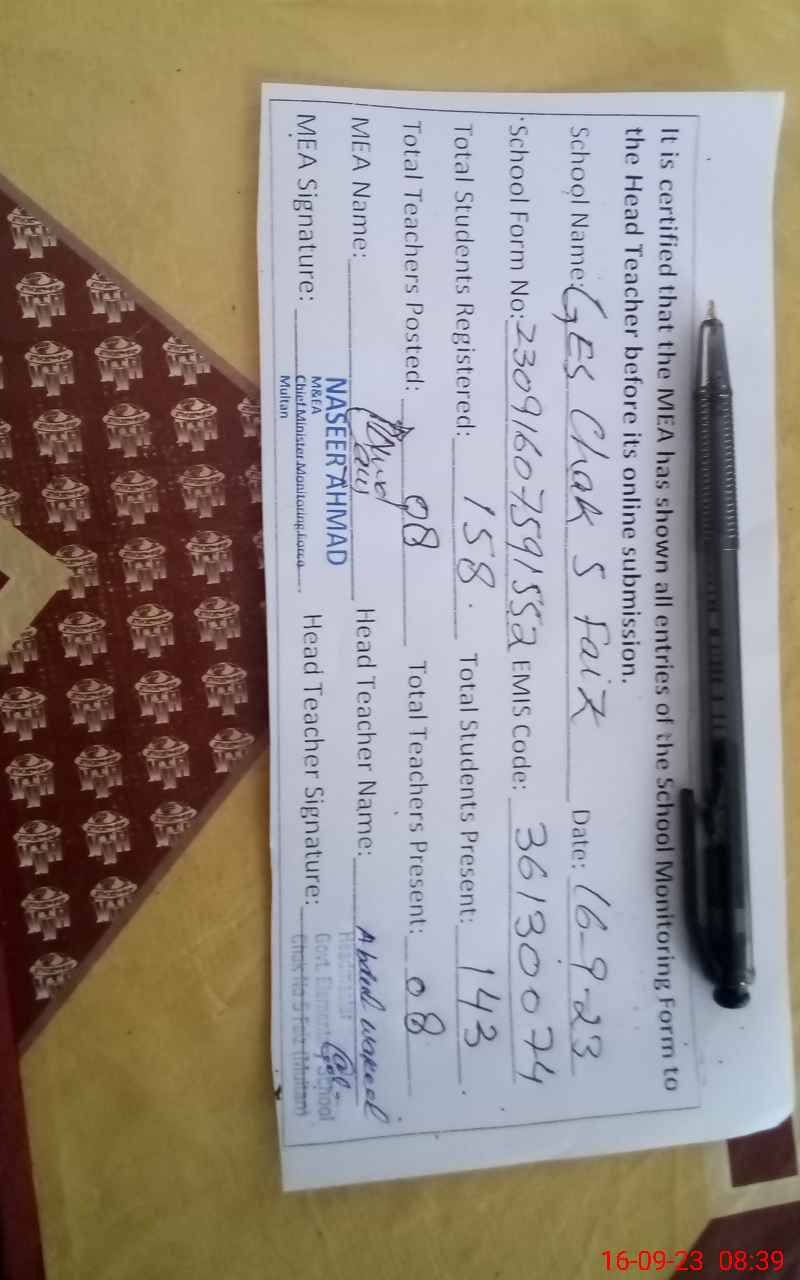 It is certified that the MEA has shown all entries of the School Monitoring Form to
the Head Teacher before its online submission.
School Name: GES Chak 5 Faiz Date: 16-9-23
School Form No: 23091607591552 EMIS Code: 36130074
Total Students Registered: 158. Total Students Present: 143.
Total Teachers Posted: 08 Total Teachers Present: 08
MEA Name: Head Teacher Name: Abdul Wakeel
NASEER AHMAD
M&EA
Chief Minister Monitoring Force
Multan
MEA Signature: Head Teacher Signature:
Headmaster
Govt. Elementary School
Chak No 5 Faiz (Multan)
16-09-23 08:39